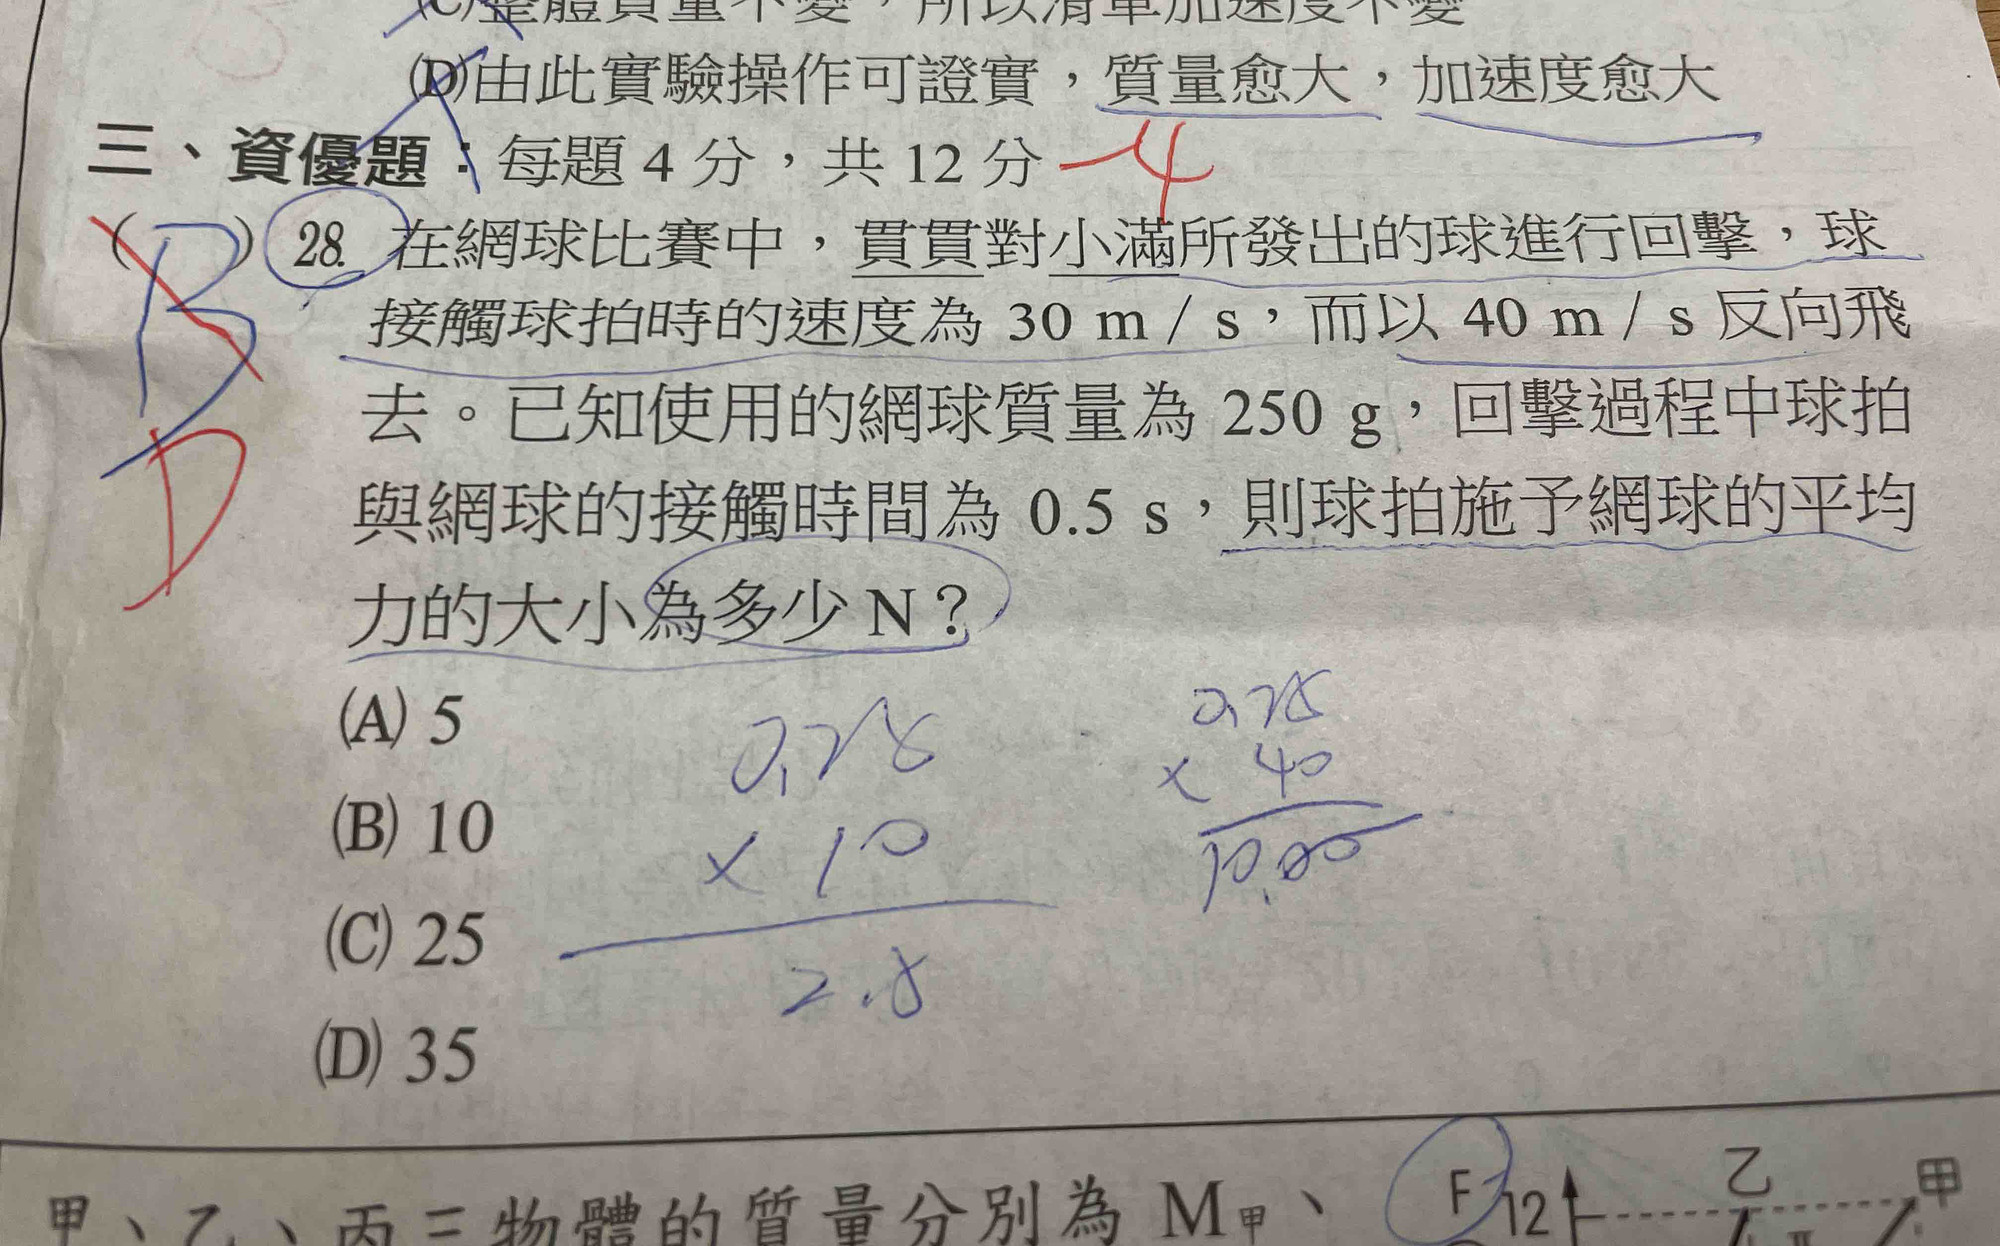 (C)整體質量不變，所以滑車加速度不變
(D)由此實驗操作可證實，質量愈大，加速度愈大
三、資優題：每題 4 分，共 12 分 -4
(B) 28. 在網球比賽中，貫貫對小滿所發出的球進行回擊，球
接觸球拍時的速度為 30 m / s，而以 40 m / s 反向飛
去。已知使用的網球質量為 250 g，回擊過程中球拍
D
與網球的接觸時間為 0.5 s，則球拍施予網球的平均
力的大小為多少 N？
(A) 5
(B) 10
(C) 25
(D) 35
0.25
× 10
2.5
0.25
× 40
10.00
甲、乙、丙三物體的質量分別為 M甲、
F
12
乙
甲